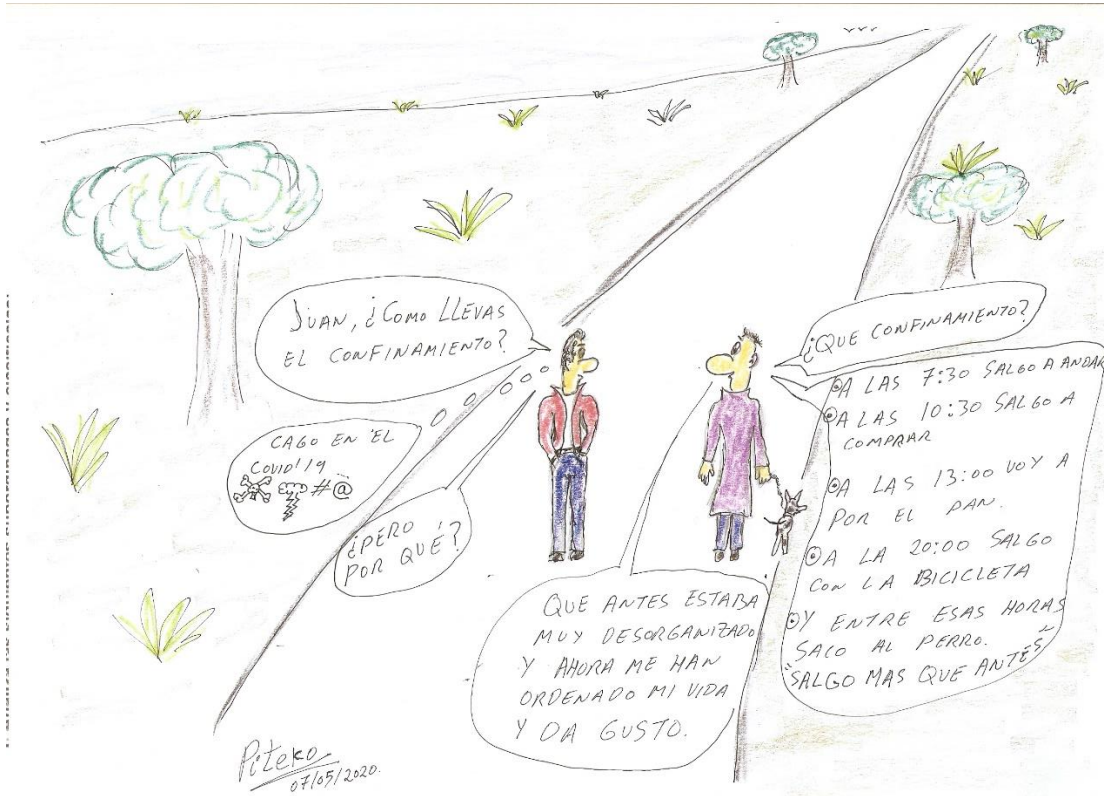 JUAN, ¿COMO LLEVAS
EL CONFINAMIENTO?
¿QUE CONFINAMIENTO?
⊙A LAS 7:30 SALGO A ANDAR
⊙A LAS 10:30 SALGO A
COMPRAR
⊙A LAS 13:00 VOY A
POR EL PAN.
⊙A LA 20:00 SALGO
CON LA BICICLETA
⊙Y ENTRE ESAS HORAS
SACO AL PERRO.
"SALGO MAS QUE ANTES"
¿PERO
POR QUÉ?
QUE ANTES ESTABA
MUY DESORGANIZADO
Y AHORA ME HAN
ORDENADO MI VIDA
Y DA GUSTO.
CAGO EN EL
COVID'19
#@
Piteko
07/05/2020.